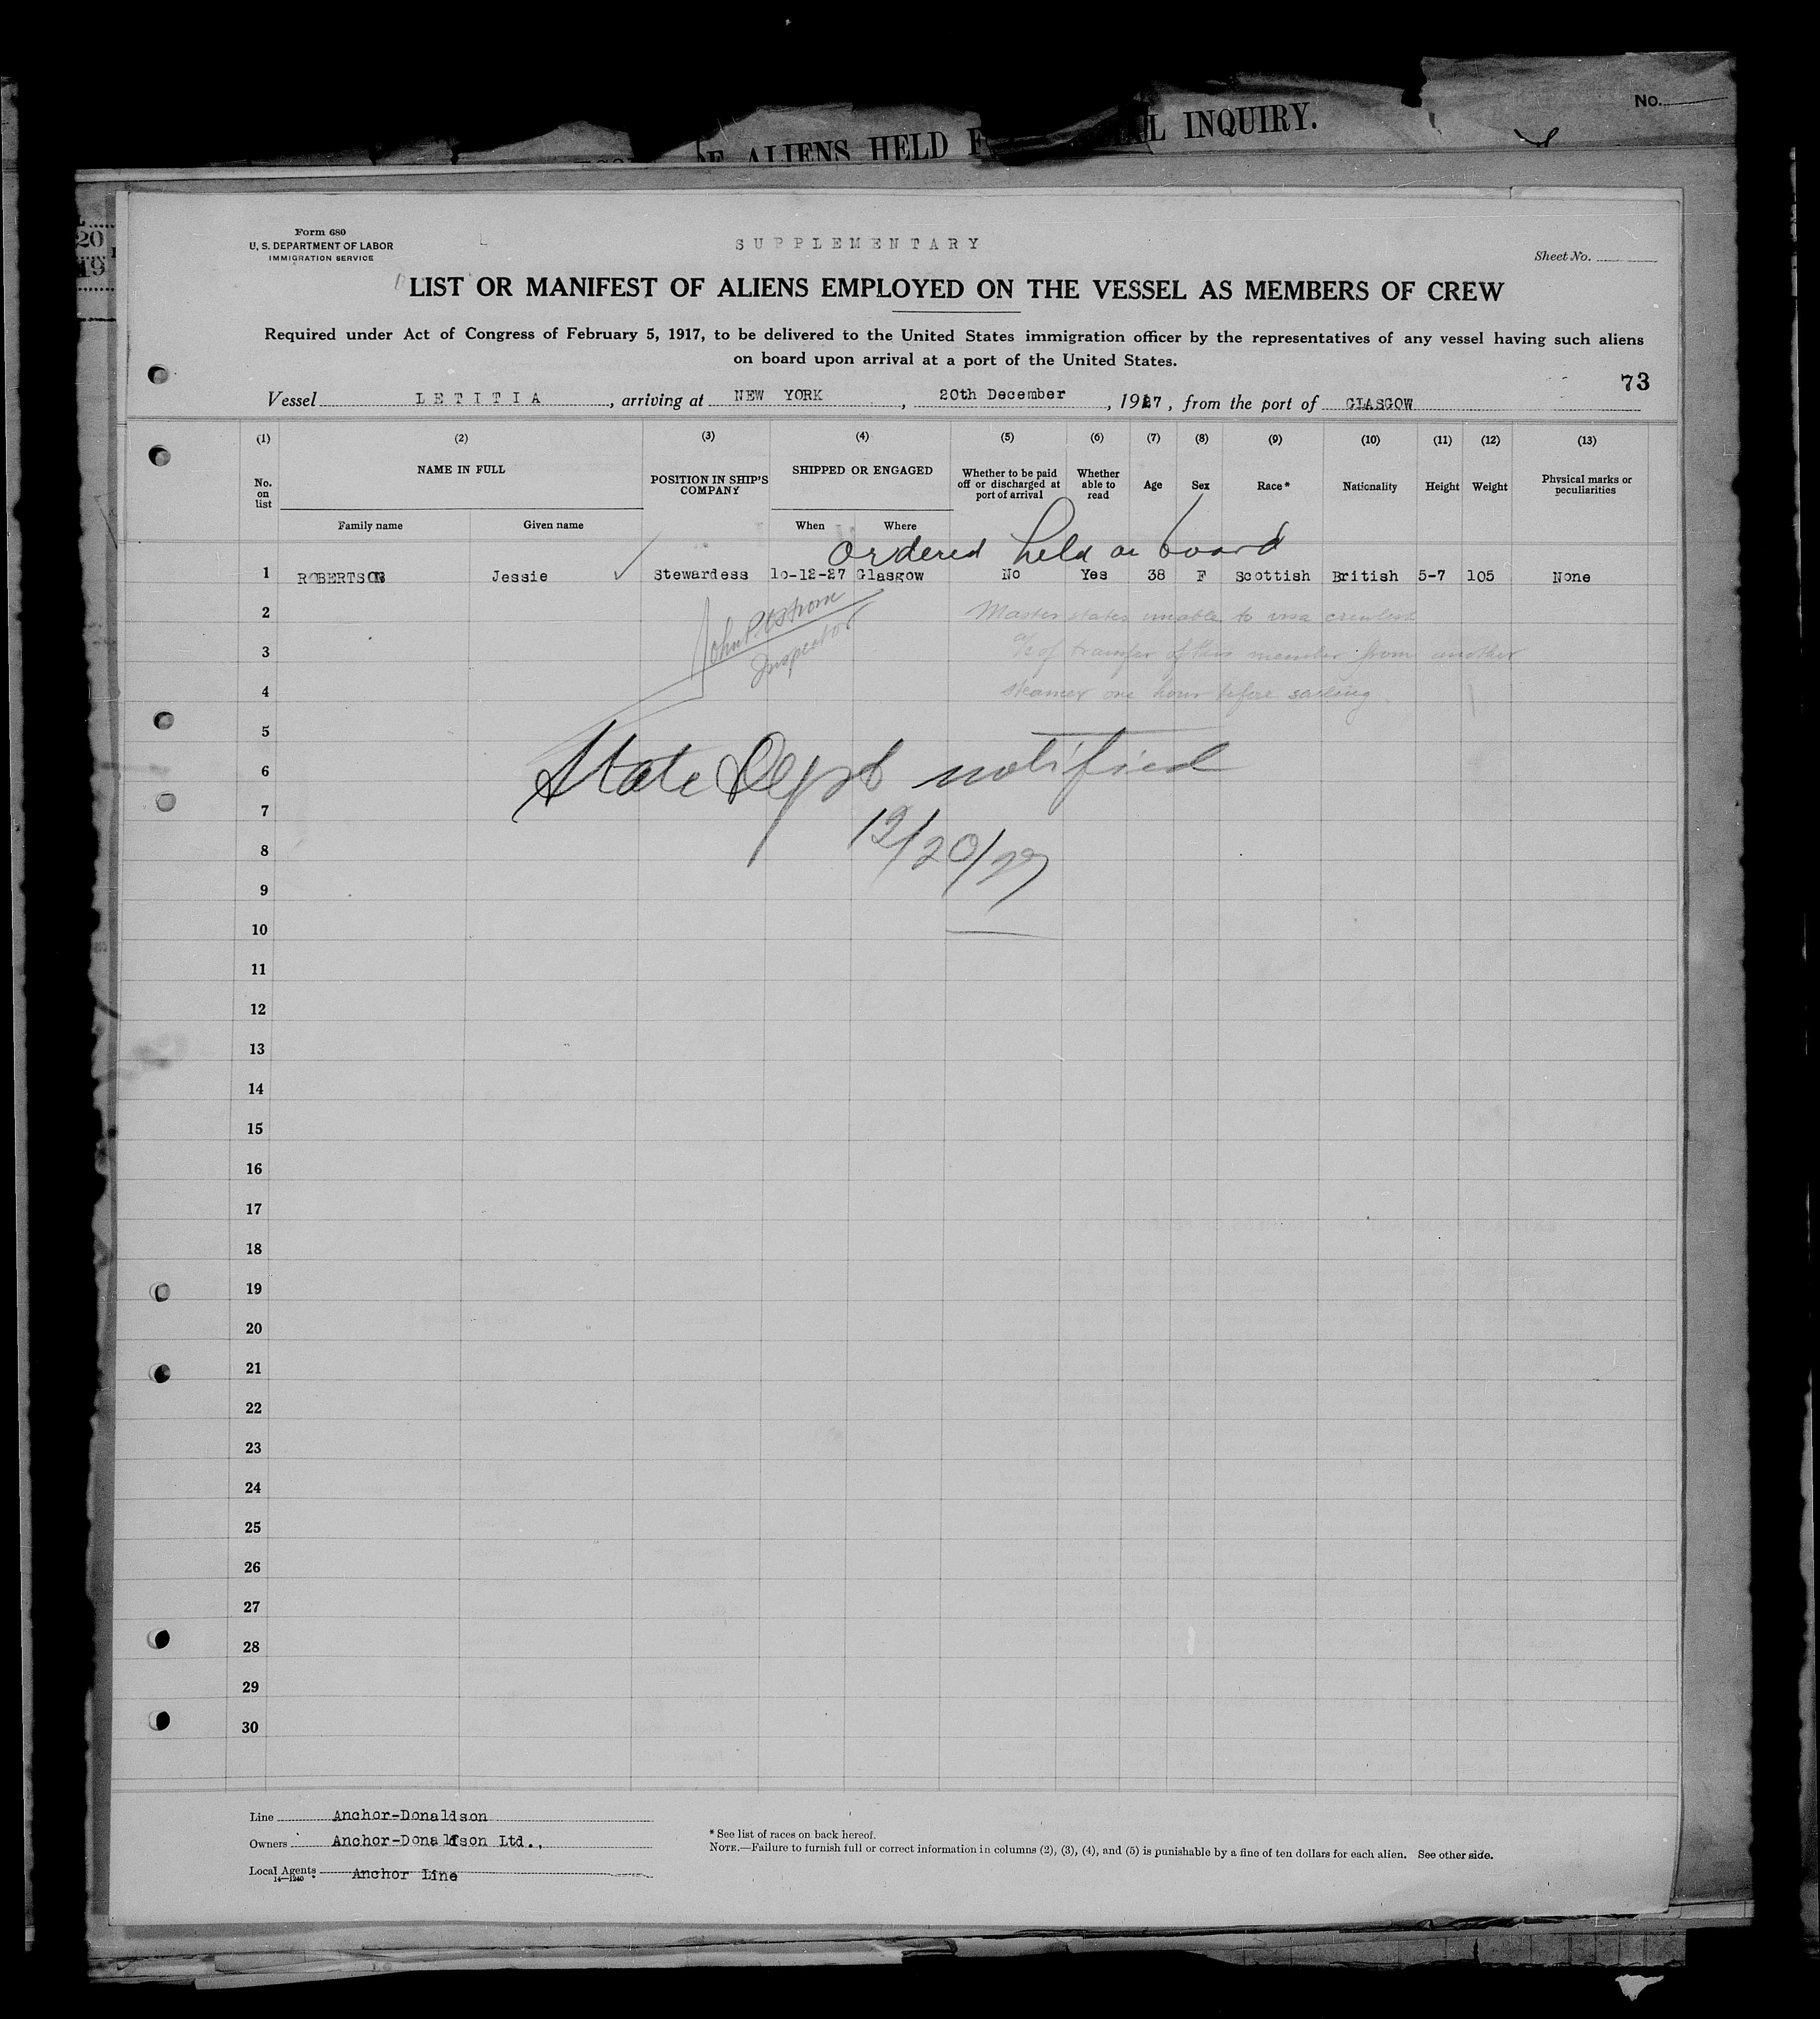 ALIENS HELD INQUIRY.
No.
20
19
Form 680
U. S. DEPARTMENT OF LABOR
IMMIGRATION SERVICE
SUPPLEMENTARY
Sheet No.
LIST OR MANIFEST OF ALIENS EMPLOYED ON THE VESSEL AS MEMBERS OF CREW
Required under Act of Congress of February 5, 1917, to be delivered to the United States immigration officer by the representatives of any vessel having such aliens
on board upon arrival at a port of the United States.
73
Vessel LETITIA, arriving at NEW YORK, 20th December, 1927, from the port of GLASGOW
(1) (2) (3) (4) (5) (6) (7) (8) (9) (10) (11) (12) (13)
No. on list NAME IN FULL POSITION IN SHIP'S COMPANY SHIPPED OR ENGAGED Whether to be paid off or discharged at port of arrival Whether able to read Age Sex Race* Nationality Height Weight Physical marks or peculiarities
Family name Given name When Where
Ordered held on board
1 ROBERTSON Jessie ✓ Stewardess 10-12-27 Glasgow No Yes 38 F Scottish British 5-7 105 None
2 Master states unable to visa crewlist
John P. Ostrom
3 a/c of transfer of this member from another
Inspector
4 steamer one hour before sailing
5
6 State Dept notified
7
8 12/20/27
9
10
11
12
13
14
15
16
17
18
19
20
21
22
23
24
25
26
27
28
29
30
Line Anchor-Donaldson
Owners Anchor-Donaldson Ltd.,
Local Agents Anchor Line
14—1240
* See list of races on back hereof.
NOTE.—Failure to furnish full or correct information in columns (2), (3), (4), and (5) is punishable by a fine of ten dollars for each alien. See other side.